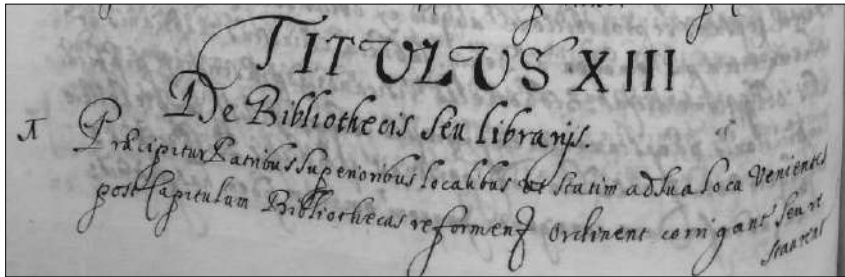 TITULUS XIII
De Bibliothecis seu librarijs.
1 Præcipitur Patribus Superioribus localibus ut statim ad sua loca Venientes
post Capitulum Bibliothecas reforment Ordinent corrigant seu re
staurent